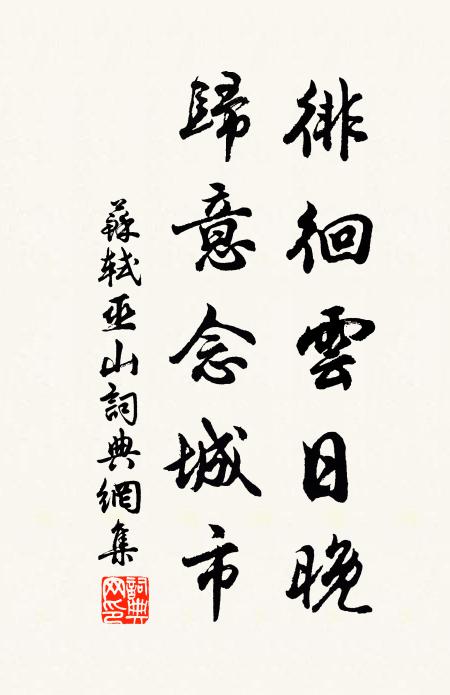 徘徊雲日晚
歸意念城市
蘇軾巫山詞典網集
詞典網印